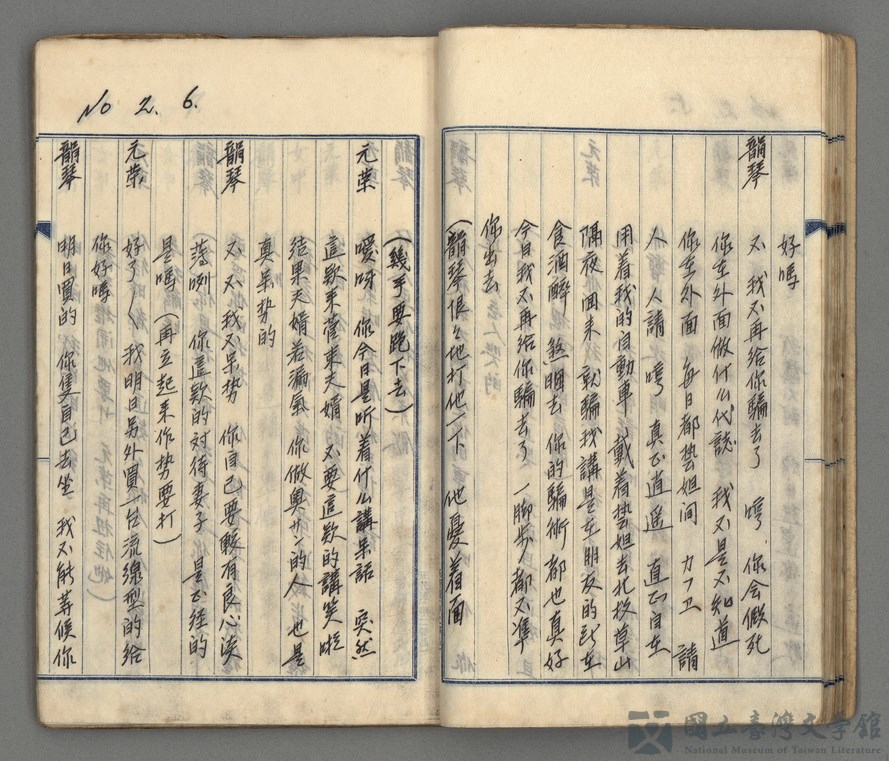 好嗎
韻琴 不 我不再給你騙去了 哼 你会假死
你在外面做什么代誌 我不是不知道
你在外面 每日都芸妲间 カフエ 請
人 人請 哼 真正逍遥 真正自在
用着我的自動車 載着芸妲去北投草山
隔夜回来 就騙我講是在朋友的
食酒醉 煞睏去 你的騙術都也真好
今日我不再給你騙去了 一脚步都不準
你出去
(韻琴恨々地打他一下 他憂着面
No 2. 6.
(幾乎要跪下去)
元荣 噯呀 你今日是听着什么講呆話 突然
這欵来當東夫婿 不要這欵的講笑啦
结果夫婿若漏氣 你做奧サン的人 也是
真呆势的
韻琴 不 不 我不呆势 你自己要較有良心淡
薄咧 你這欵的対待妻子 是正経的
是嗎 (再立起来作势要打)
元荣 好了〱 我明日另外買一台流線型的給
你好嗎
韻琴 明日買的 你隻自己去坐 我不能等候你
國立臺灣文學館
National Museum of Taiwan Literature